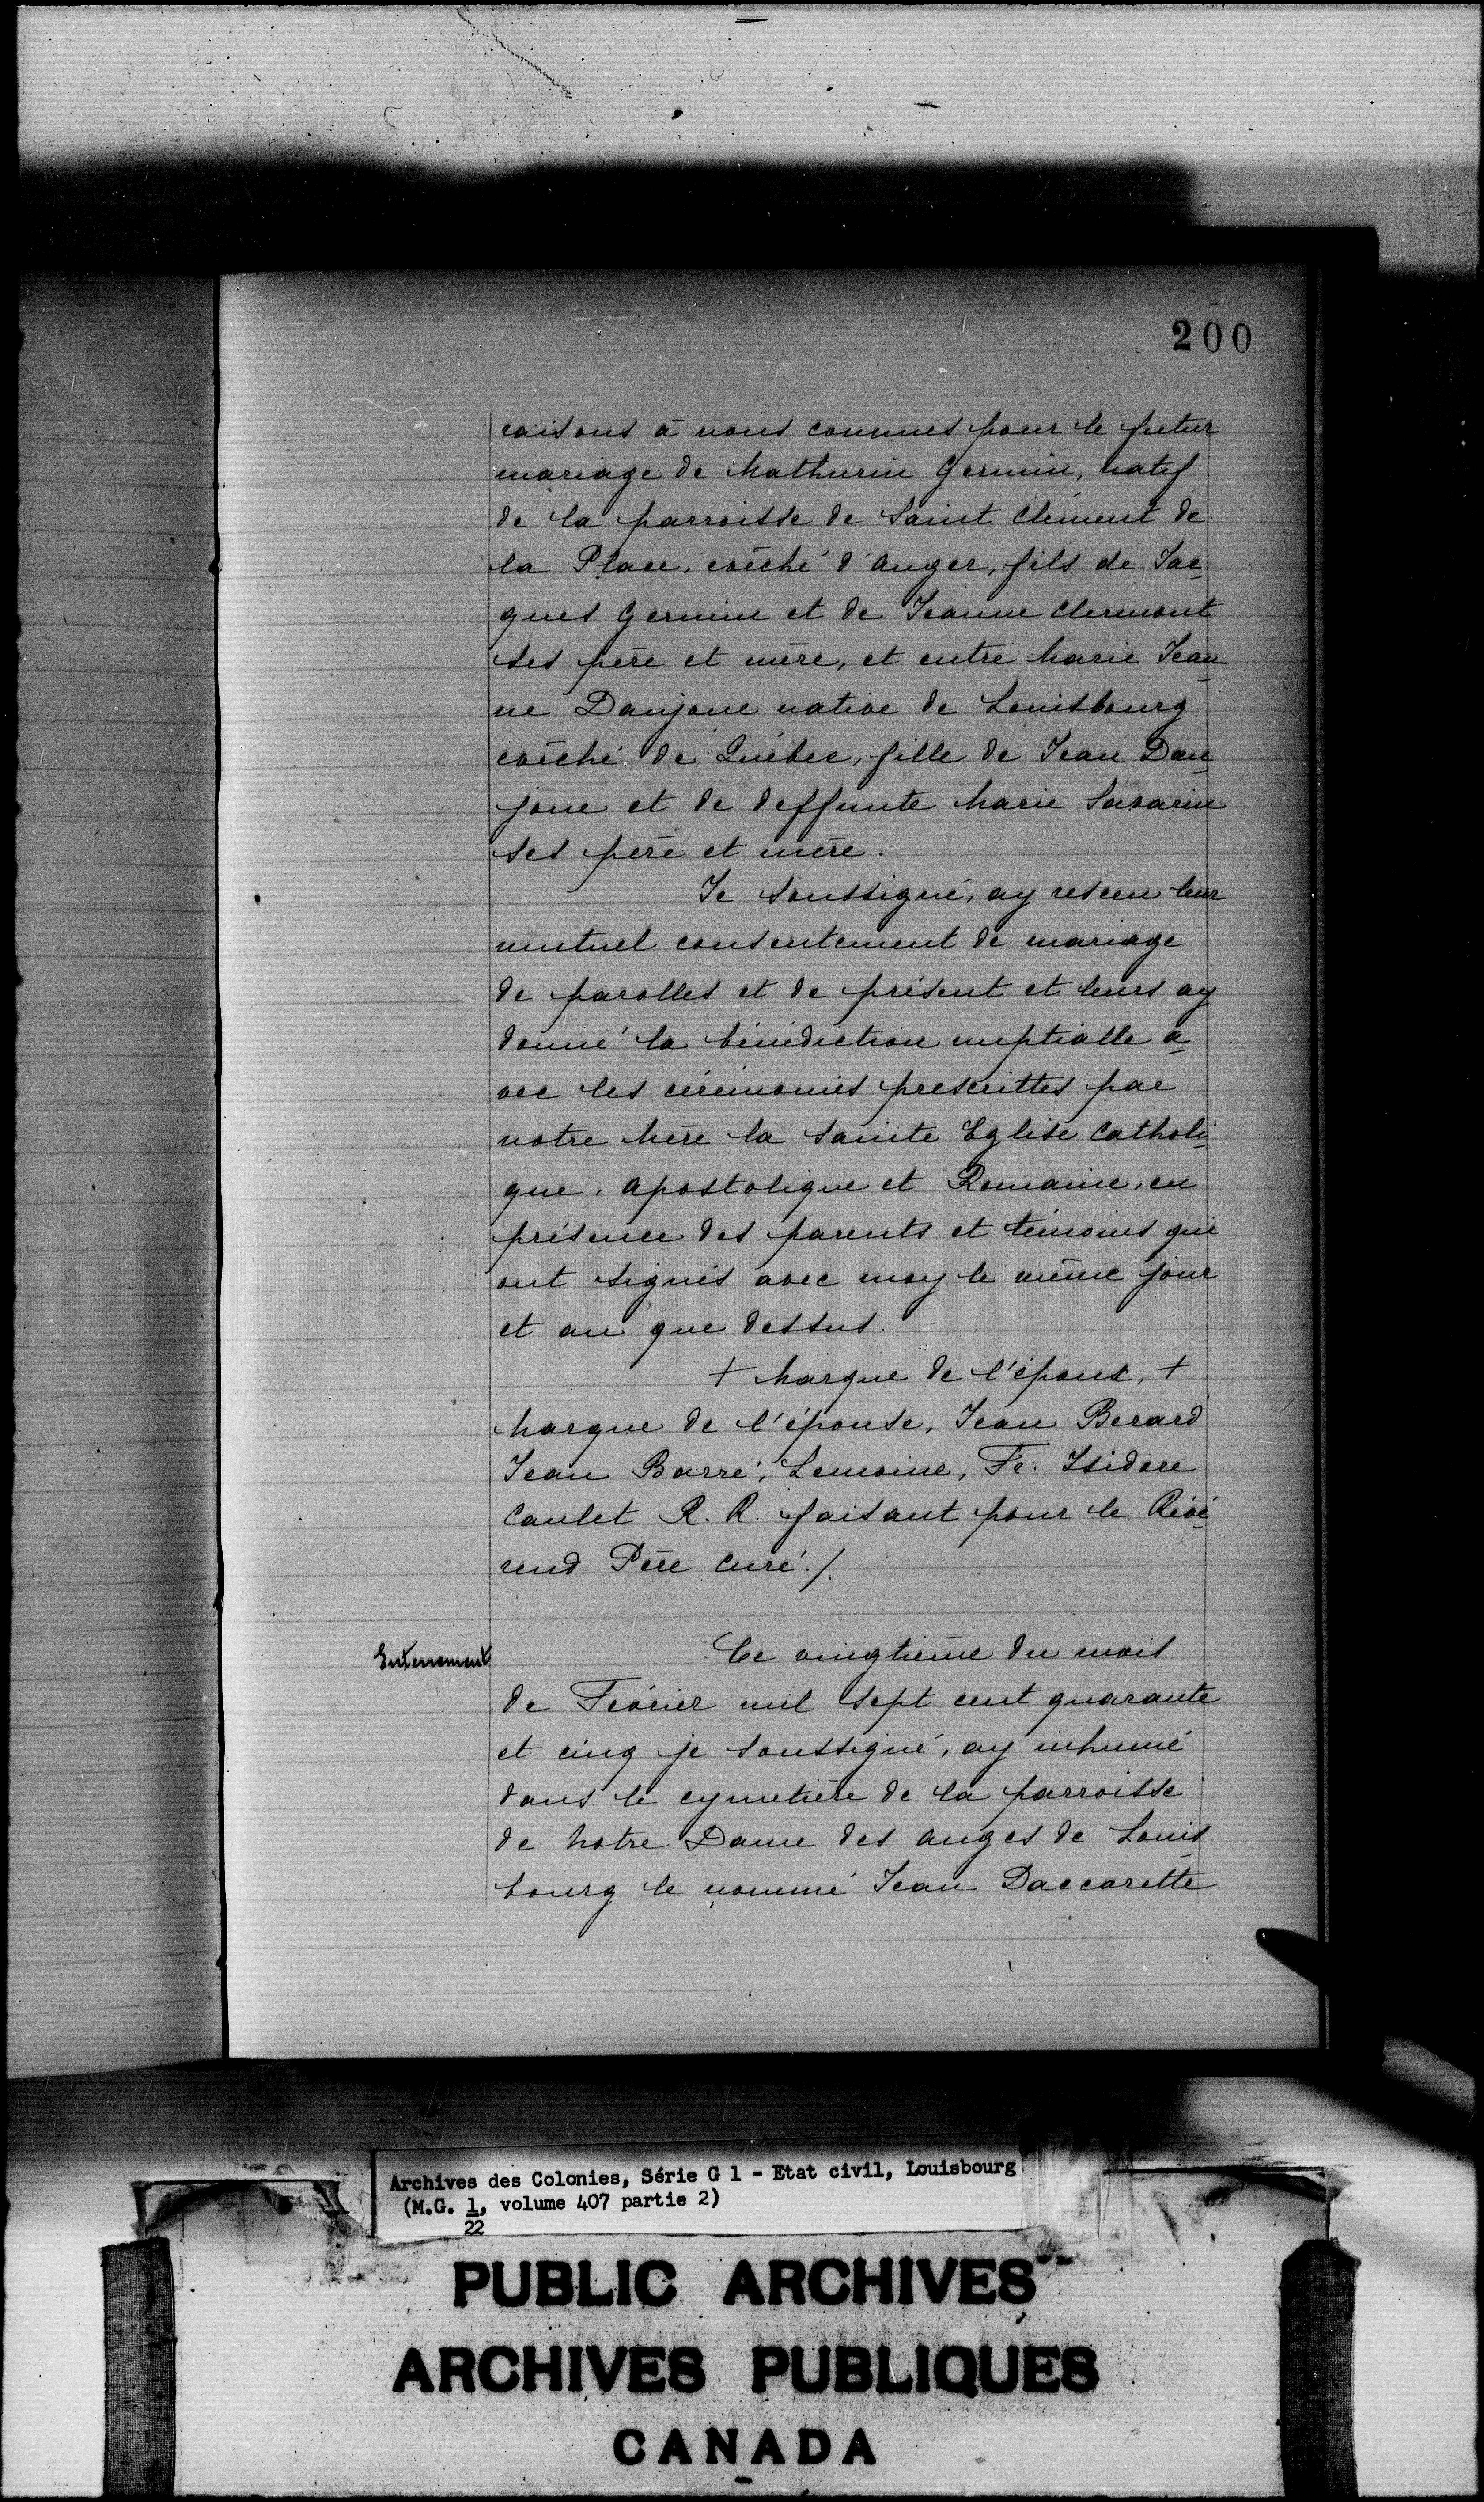 200
raisons à nous connues pour le futur
mariage de Mathurin Germin, natif
de la parroisse de Saint Clément de
la Place, evêché d'Anger, fils de Jac-
ques Germin et de Jeanne Clermont
ses père et mère, et entre Marie Jean-
ne Danjoue native de Louisbourg
evêché de Québec, fille de Jean Dan-
joue et de deffunte Marie Savarin
ses père et mère.
Je Soussigné, ay resceu leur
mutuel consentement de mariage
de parolles et de présent et leurs ay
donné la bénédiction nuptialle a-
vec les cérémonies prescrittes par
notre Mère la Sainte Eglise Catholi-
que, apostolique et Romaine, en
présence des parents et témoins qui
ont signés avec moy le même jour
et an que dessus.
+ Marque de l'époux, +
Marque de l'épouse, Jean Berard
Jean Barré, Lemoine, Fr. Isidore
Caulet R. R. faisant pour le Révé-
rend Père Curé./.
Enterrement
Ce vingtième du mois
de Février mil sept cent quarante
et cinq je soussigné, ay inhumé
dans le cymetière de la parroisse
de Notre Dame des Anges de Louis-
bourg le nommé Jean Daccarette
Archives des Colonies, Série G 1 - Etat civil, Louisbourg
(M.G. 1, volume 407 partie 2)
22
PUBLIC ARCHIVES
ARCHIVES PUBLIQUES
CANADA